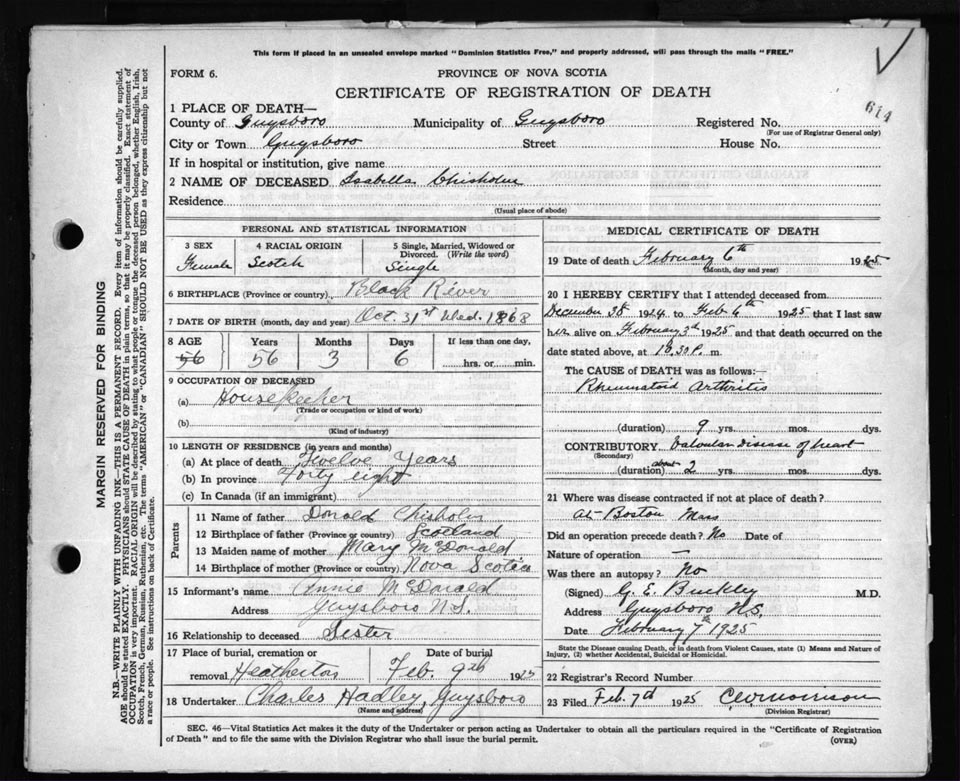 This form if placed in an unsealed envelope marked "Dominion Statistics Free," and properly addressed, will pass through the mails "FREE."
FORM 6.
PROVINCE OF NOVA SCOTIA
CERTIFICATE OF REGISTRATION OF DEATH
614
1 PLACE OF DEATH—
County of Guysboro Municipality of Guysboro Registered No.
(For use of Registrar General only)
City or Town Guysboro Street House No.
If in hospital or institution, give name
2 NAME OF DECEASED Isabella Chisholm
Residence
(Usual place of abode)
PERSONAL AND STATISTICAL INFORMATION
3 SEX 4 RACIAL ORIGIN 5 Single, Married, Widowed or Divorced. (Write the word)
Female Scotch Single
6 BIRTHPLACE (Province or country) Black River
7 DATE OF BIRTH (month, day and year) Oct. 31st Wed. 1868
8 AGE Years Months Days If less than one day,
56 56 3 6 hrs. or min.
9 OCCUPATION OF DECEASED
(a) Housekeeker
(Trade or occupation or kind of work)
(b)
(Kind of industry)
10 LENGTH OF RESIDENCE (in years and months)
(a) At place of death Twelve Years
(b) In province Forty eight
(c) In Canada (if an immigrant)
Parents
11 Name of father Donald Chisholm
12 Birthplace of father (Province or country) Scotland
13 Maiden name of mother Mary McDonald
14 Birthplace of mother (Province or country) Nova Scotia
15 Informant's name Annie McDonald
Address Guysboro N.S.
16 Relationship to deceased Sister
17 Place of burial, cremation or removal Date of burial
Heatherton Feb. 9th 1925
18 Undertaker Charles Hadley, Guysboro
(Name and address)
MEDICAL CERTIFICATE OF DEATH
19 Date of death February 6th 1925
(Month, day and year)
20 I HEREBY CERTIFY that I attended deceased from
December 1924 to Feb 6th 1925 that I last saw
her alive on February 3rd 1925 and that death occurred on
date stated above, at 10.30 P. m.
The CAUSE OF DEATH was as follows:—
Rheumatoid Arthritis
(duration) 9 yrs. mos. dys.
CONTRIBUTORY Valvular disease of heart
(Secondary)
(duration) about 2 yrs. mos. dys.
21 Where was disease contracted if not at place of death?
At Boston Mass
Did an operation precede death? No Date of
Nature of operation —
Was there an autopsy? No
(Signed) G. E. Buckley M.D.
Address Guysboro N.S.
Date February 7th 1925
State the Disease causing Death, or in death from Violent Causes, state (1) Means and Nature of Injury, (2) whether Accidental, Suicidal or Homicidal.
22 Registrar's Record Number
23 Filed Feb. 7th 1925
(Division Registrar)
SEC. 46—Vital Statistics Act makes it the duty of the Undertaker or person acting as Undertaker to obtain all the particulars required in the "Certificate of Registration
of Death" and to file the same with the Division Registrar who shall issue the burial permit.
(OVER)
MARGIN RESERVED FOR BINDING
N.B.—WRITE PLAINLY WITH UNFADING INK—THIS IS A PERMANENT RECORD. Every item of information should be carefully supplied.
AGE should be stated EXACTLY. PHYSICIANS should STATE CAUSE OF DEATH in plain terms, so that it may be properly classified. Exact statement of
OCCUPATION is very important. RACIAL ORIGIN will be described by stating to what people or tongue the deceased person belonged, whether English, Irish,
Scotch, French, German, Russian, Ruthenian, etc. The terms "AMERICAN" or "CANADIAN" SHOULD NOT BE USED as they express citizenship but not
a race or people. See instructions on back of Certificate.